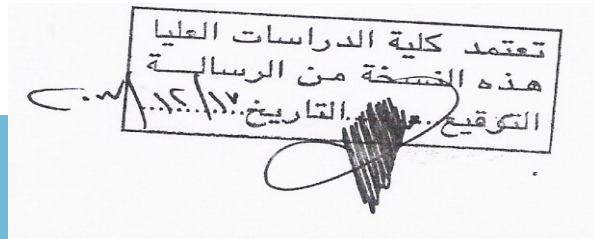 تعتمد كلية الدراسات العليا
هذه النسخة من الرسالــة
التوقيع.......التاريخ١٧/١٢/